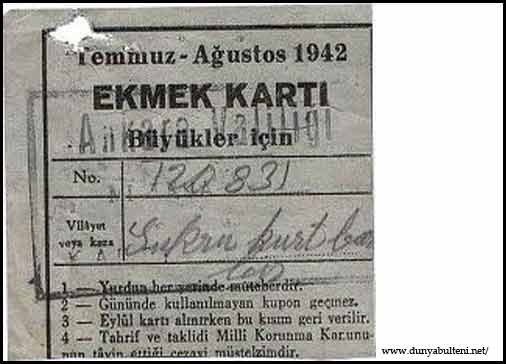 Temmuz - Ağustos 1942
EKMEK KARTI
Ankara Valiliği
Büyükler için
No. 120831
Vilâyet
veya kaza
Şükrü Kurt
1 — Yurdun her yerinde müteberdir.
2 — Gününde kullanılmayan kupon geçmez.
3 — Eylül kartı alınırken bu kısım geri verilir.
4 — Tahrif ve taklidi Milli Korunma Kanunu-
nun tâyin ettiği cezayi müstelzimdir.
www.dunyabulteni.net/